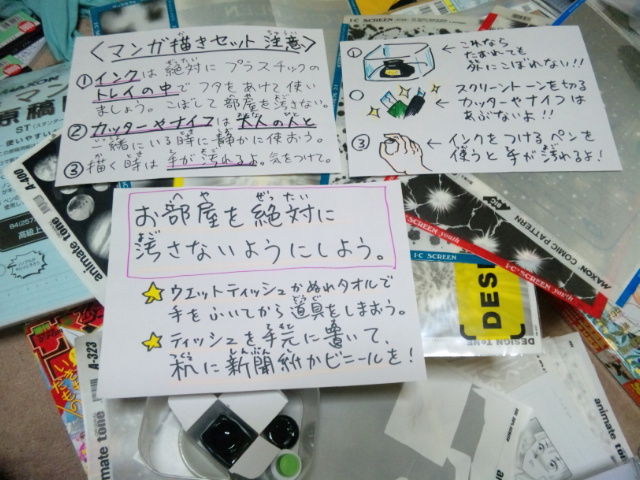 〈マンガ描きセット 注意〉
①インクは絶対にプラスチックの
トレイの中でフタをあけて使い
ましょう。こぼして部屋を汚さない。
②カッターやナイフは大人の人と
一緒にいる時に静かに使おう。
③描く時は手が汚れるよ。気をつけて。
① ←これなら
たおれても
外にこぼれない!!
スクリーントーンを切る
←カッターやナイフは
あぶないよ!!
③ ←インクをつけるペンを
使うと手が汚れるよ!
お部屋を絶対に
汚さないようにしよう。
ウエットティッシュかぬれタオルで
手をふいてから道具をしまおう。
ティッシュを手元に置いて、
机に新聞紙かビニールを!
I·C SCREEN
I·C SCREEN youth
MAXON COMIC PATTERN
I·C SCREEN
DESIGN TONE
DESI
A-400
animate tone
A-323
animate tone
animate tone
原稿用